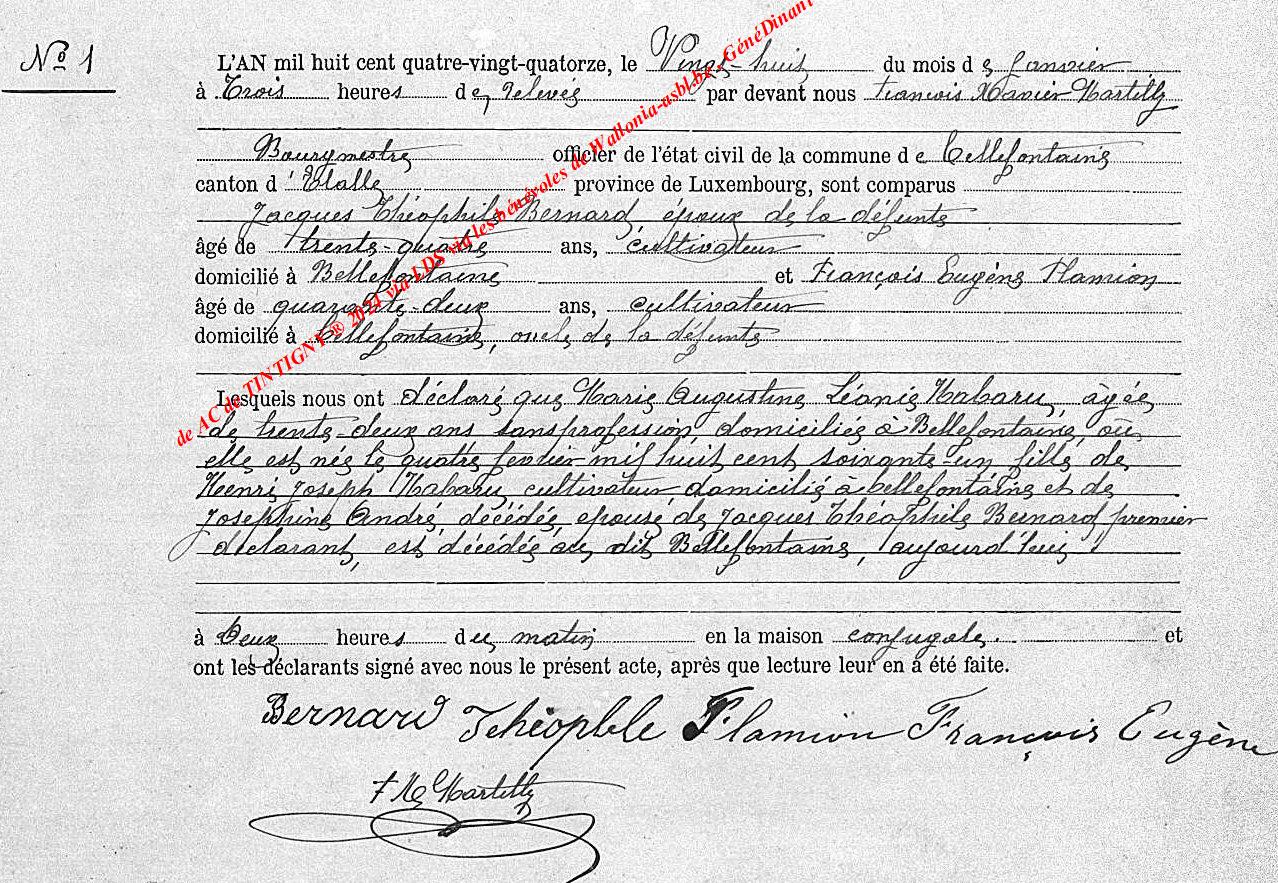 No 1
L'AN mil huit cent quatre-vingt-quatorze, le Vingt-huit du mois de Janvier
à Trois heures de relevée par devant nous François Xavier Martilly
Bourgmestre officier de l'état civil de la commune de Bellefontaine
canton d'Etalle province de Luxembourg, sont comparus
Jacques Théophile Bernard, époux de la défunte
âgé de trente-quatre ans, cultivateur
domicilié à Bellefontaine et François Eugène Flamion
âgé de quarante-deux ans, cultivateur
domicilié à Bellefontaine, oncle de la défunte
Lesquels nous ont déclaré que Marie Augustine Léonie Habaru, âgée
de trente-deux ans sans profession, domiciliée à Bellefontaine, où
elle est née le quatre fevrier mil huit cent soixante-un fille de
Henri Joseph Habaru, cultivateur, domicilié à bellefontaine et de
Josephine André, décédée, epouse de Jacques Théophile Bernard premier
declarant, est décédée au dit Bellefontaine, aujourd'hui
à Deux heures du matin en la maison conjugale. et
ont les déclarants signé avec nous le présent acte, après que lecture leur en a été faite.
Bernard Théophle Flamion François Eugène
F X Martilly
de AC de TINTIGNY ® 2024 via LDS via les bénévoles de Wallonia-asbl.be - GénéDinant